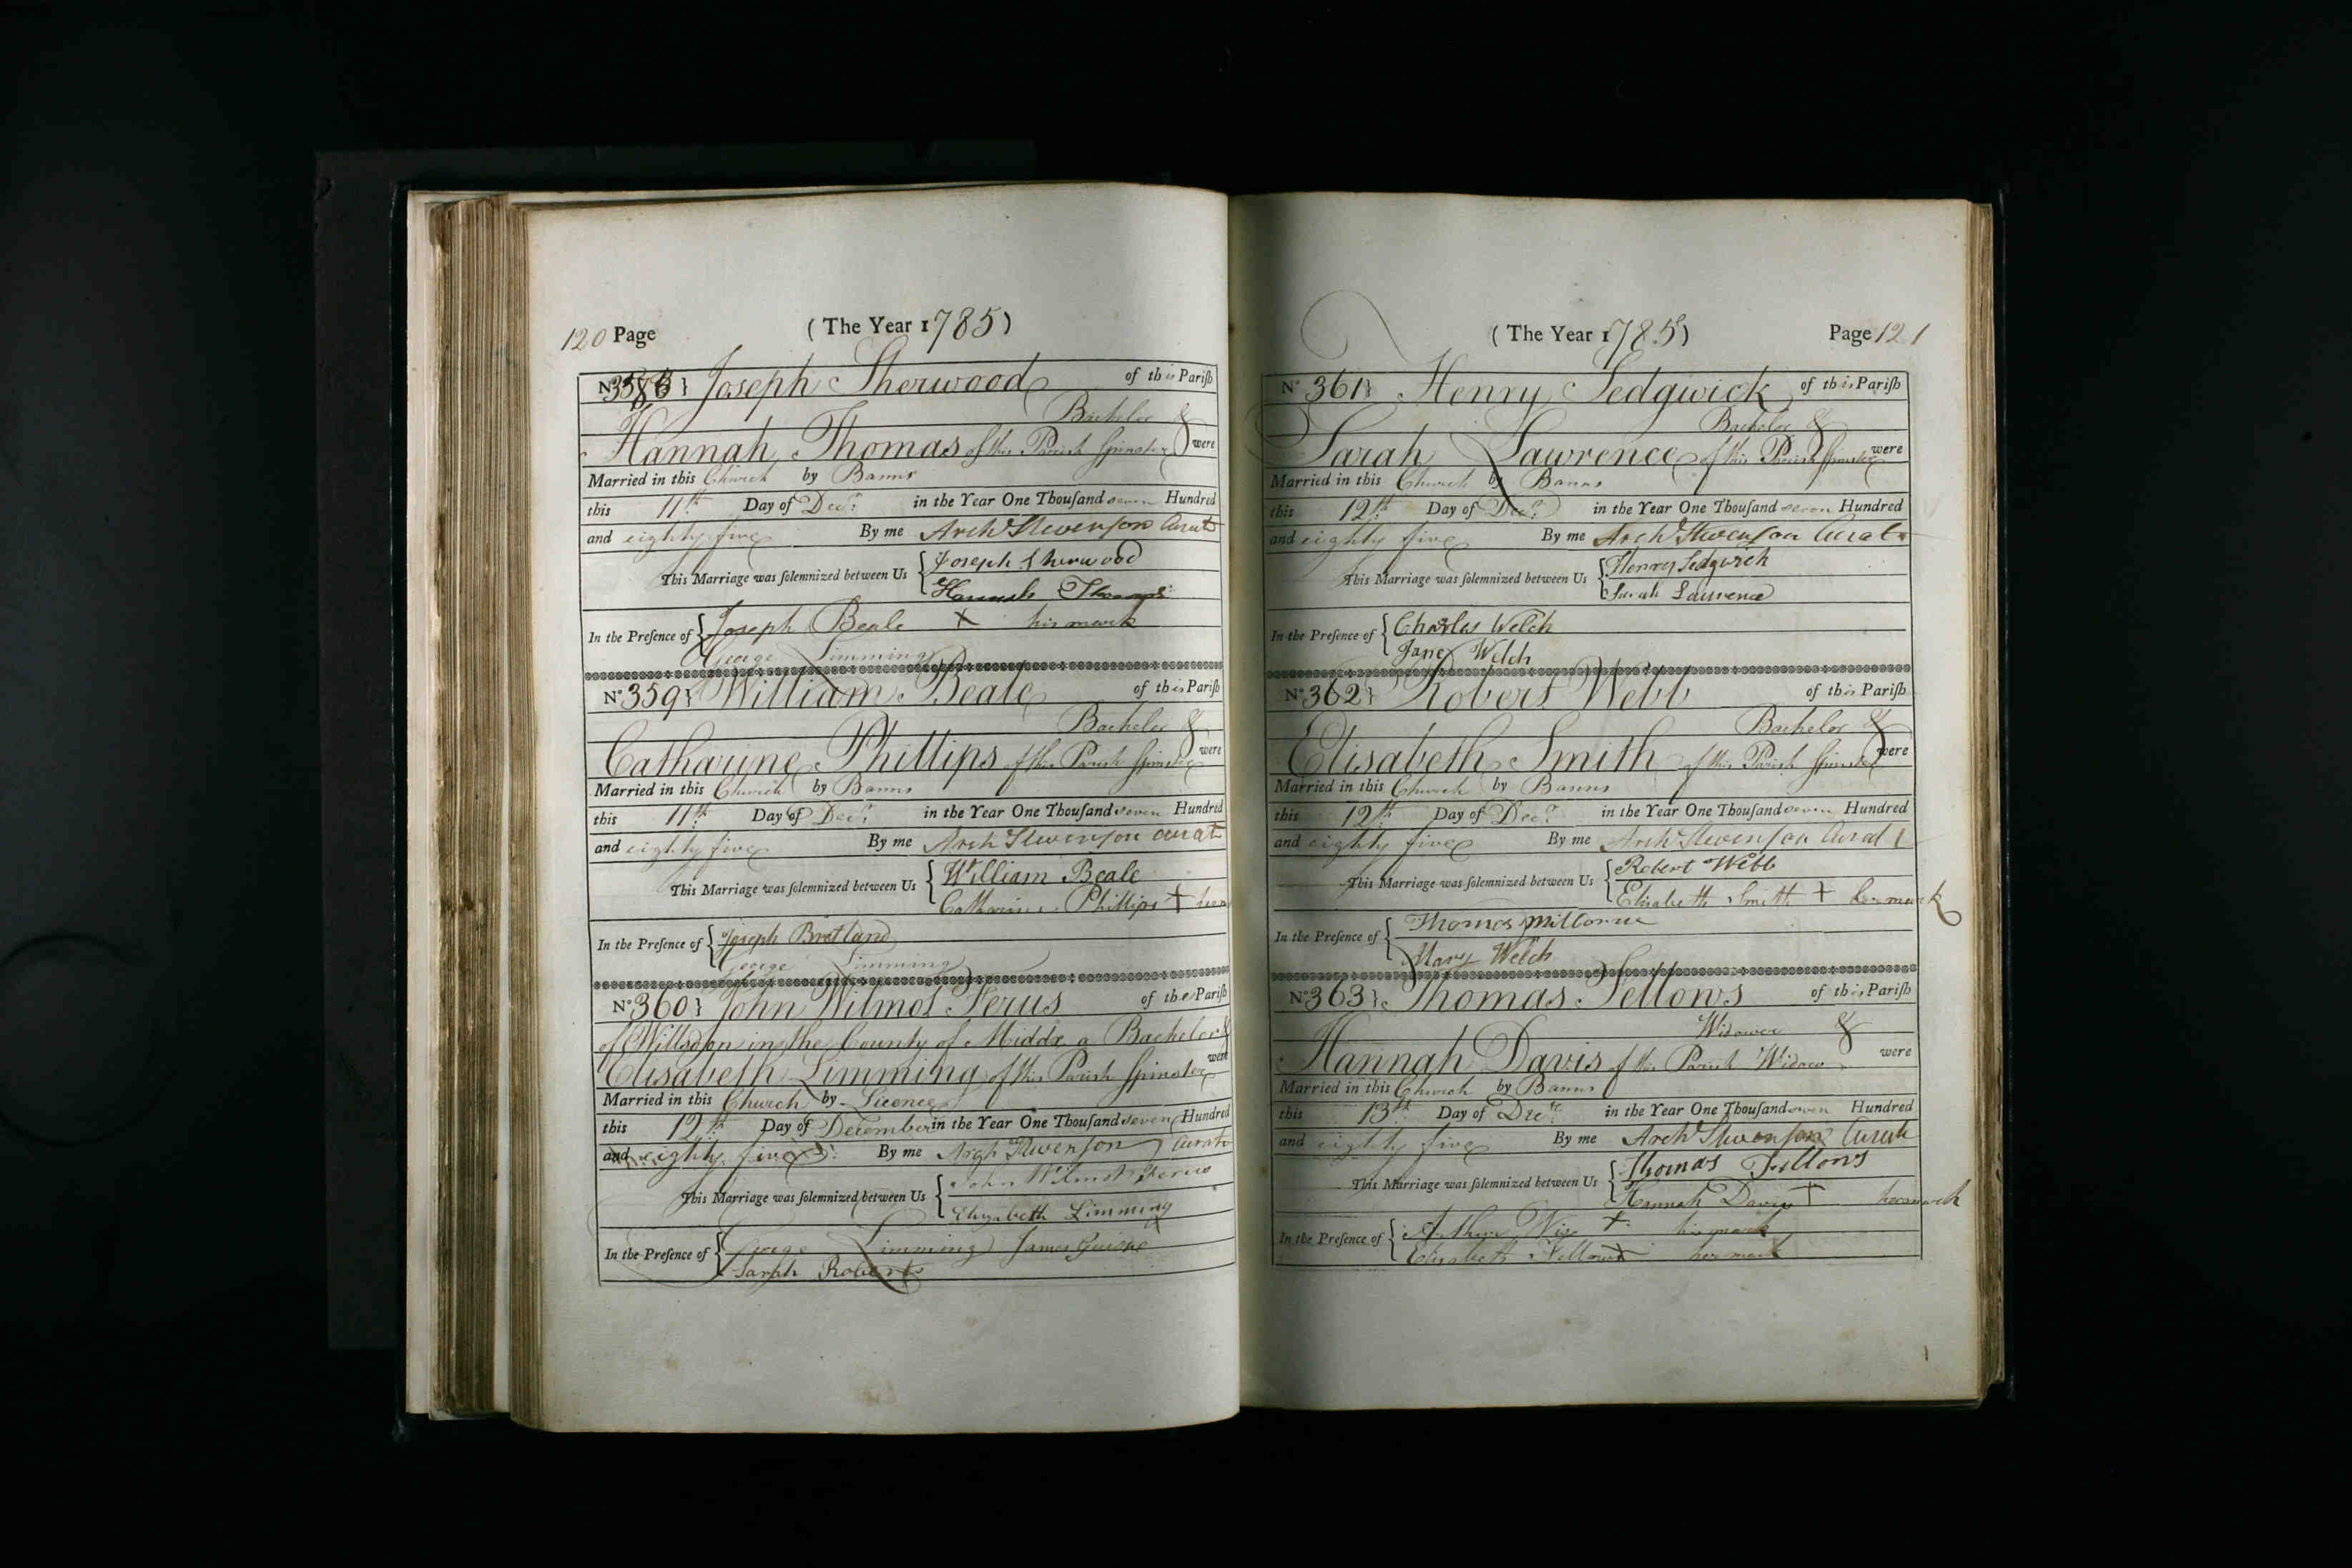 120 Page (The Year 1785)
No 358} Joseph Sherwood of this Parish
Bachelor &
Hannah Thomas of this Parish Spinster were
Married in this Church by Banns
this 11th Day of Decr in the Year One Thousand seven Hundred
and eighty five By me Archd Stevenson Curat
This Marriage was solemnized between Us { Joseph Sherwood
Hannah Thomas
In the Presence of { Joseph Beale X his mark
George Limming
No 359} William Beale of this Parish
Bachelor &
Catharine Phillips of this Parish Spinster were
Married in this Church by Banns
this 11th Day of Decr in the Year One Thousand seven Hundred
and eighty five By me Archd Stevenson Curat
This Marriage was solemnized between Us { William Beale
Catharine Phillips + her
In the Presence of { Joseph Bratland
George Limming
No 360} John Wilmot Ferus of the Parish
of Willsdon in the County of Middx a Bachelor &
Elisabeth Limming of this Parish Spinster were
Married in this Church by Licence
this 12th Day of December in the Year One Thousand seven Hundred
and eighty five By me Archd Stevenson Curate
This Marriage was solemnized between Us { John Wilmot Ferus
Elizabeth Limming
In the Presence of { George Limming James
Sarah Roberts
(The Year 1785) Page 121
No 361} Henry Sedgwick of this Parish
Bachelor &
Sarah Lawrence of this Parish Spinster were
Married in this Church by Banns
this 12th Day of Decr in the Year One Thousand seven Hundred
and eighty five By me Archd Stevenson Curat
This Marriage was solemnized between Us { Henry Sedgwick
Sarah Lawrence
In the Presence of { Charles Welch
Jane Welch
No 362} Robert Webb of this Parish
Bachelor &
Elisabeth Smith of this Parish Spinster were
Married in this Church by Banns
this 12th Day of Decr in the Year One Thousand seven Hundred
and eighty five By me Archd Stevenson Curat
This Marriage was solemnized between Us { Robert Webb
Elisabeth Smith + her mark
In the Presence of { Thomas Millorne
Mary Welch
No 363} Thomas Fellows of this Parish
Widower &
Hannah Davis of this Parish Widow were
Married in this Church by Banns
this 13th Day of Decr in the Year One Thousand seven Hundred
and eighty five By me Archd Stevenson Curate
This Marriage was solemnized between Us { Thomas Fellows
Hannah Davis + her mark
In the Presence of { Arthur Wise + his mark
Elisabeth Fellows + her mark